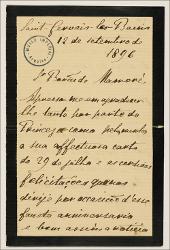 Saint Gervais-les-Bains
12 de setembro de
1896
Sr. Barão de Mamoré,
Apresso-me em agradecer-
lhe tanto por parte da
Princeza como pela minha
a sua affectuosa carta
de 29 de julho e as cordiaes
felicitações que nos
dirije por occasião d'esse
fausto anniversario
e bem assim a noticia